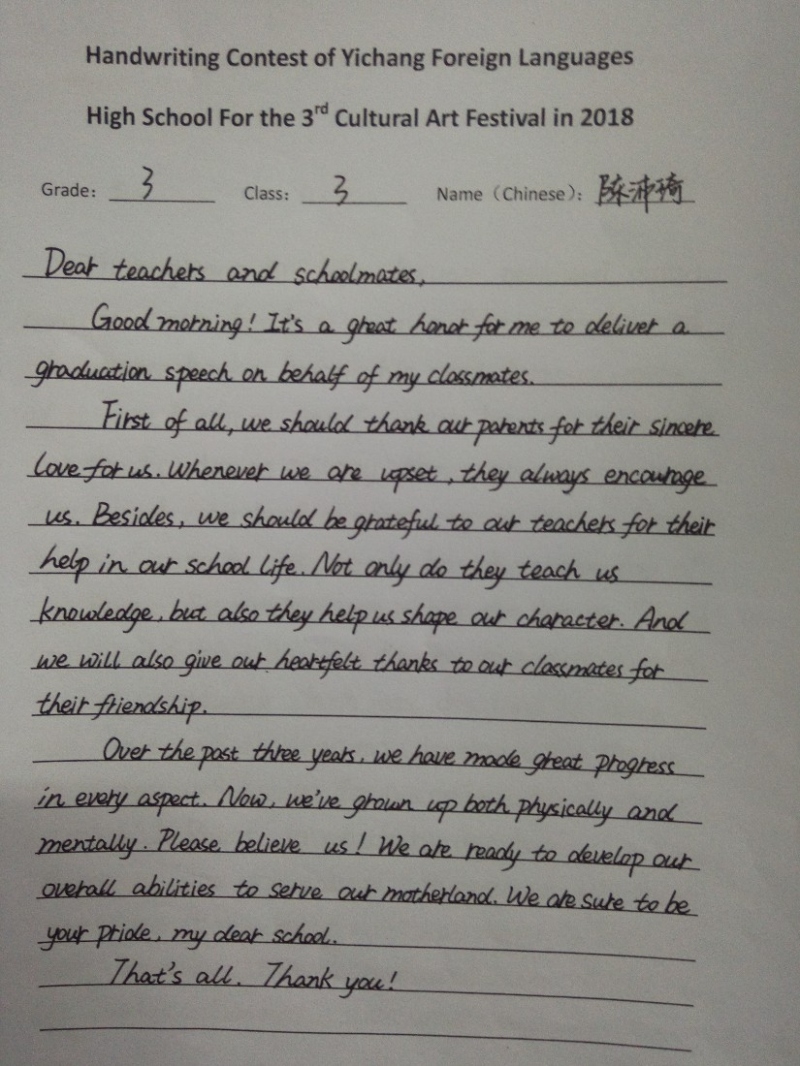 Handwriting Contest of Yichang Foreign Languages
High School For the 3rd Cultural Art Festival in 2018
Grade: 3 Class: 3 Name（Chinese）: 陈沛琦
Dear teachers and schoolmates,
Good morning! It's a great honor for me to deliver a
graduation speech on behalf of my classmates.
First of all, we should thank our parents for their sincere
love for us. Whenever we are upset, they always encourage
us. Besides, we should be grateful to our teachers for their
help in our school life. Not only do they teach us
knowledge, but also they help us shape our character. And
we will also give our heartfelt thanks to our classmates for
their friendship.
Over the past three years, we have made great progress
in every aspect. Now, we've grown up both physically and
mentally. Please believe us! We are ready to develop our
overall abilities to serve our motherland. We are sure to be
your pride, my dear school.
That's all. Thank you!